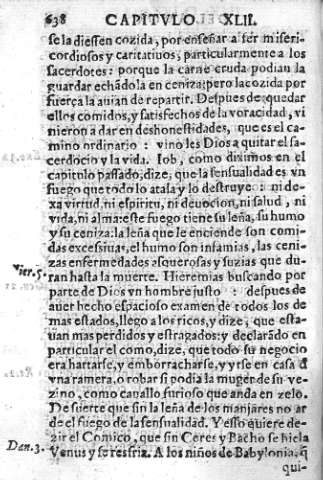 638 CAPITVLO XLII.
se la diessen cozida, por enseñar a ser miseri-
cordiosos y caritatiuos, particularmente a los
sacerdotes: porque la carne cruda podian la
guardar echãdola en ceniza: pero la cozida por
fuerça la auian de repartir. Despues de quedar
ellos comidos, y satisfechos de la voracidad, vi
nieron a dar en deshonestidades, que es el ca-
mino ordinario: vino les Dios a quitar el sa-
cerdocio y la vida. Iob, como diximos en el
capitulo passado, dize, que la sensualidad es vn
fuego que todo lo atala y lo destruye: ni de-
xa virtud, ni espiritu, ni deuocion, ni salud, ni
vida, ni alma: este fuego tiene su leña, su humo
y su ceniza: la leña que le enciende son comi-
das excessiuas, el humo son infamias, las ceni-
zas enfermedades asquerosas y suzias que du-
Hier. 5. ran hasta la muerte. Hieremias buscando por
parte de Dios vn hombre justo: despues de
auer hecho espacioso examen de todos los de
mas estados, llego a los ricos, y dize, que esta-
uan mas perdidos y estragados: y declarãdo en
particular el como, dize, que todo su negocio
era hartarse, y emborracharse, y yrse en casa d̃
vna ramera, o robar si podia la muger de su ve-
zino, como cauallo furioso que anda en zelo.
De suerte que sin la leña de los manjares no ar
de el fuego de la sensualidad. Y esso quiere de-
zir el Comico, que sin Ceres y Bacho se hiela
Dan. 3. Venus y se resfria. A los niños de Babylonia, q̃
qui-